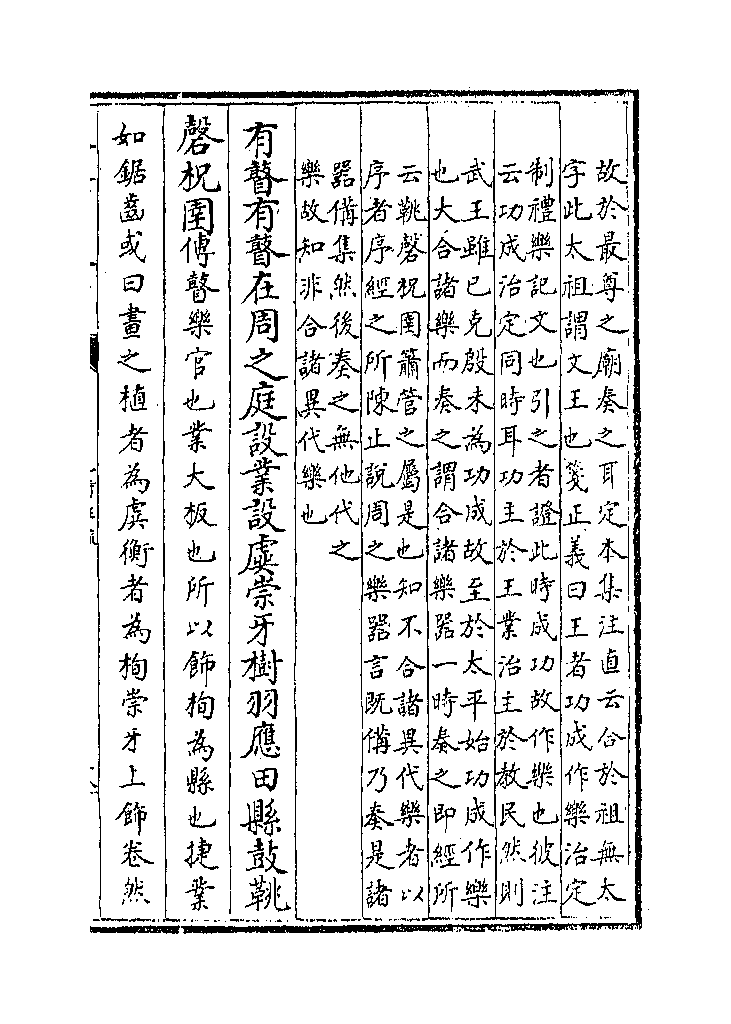 故於最尊之廟奏之耳定本集注直云合於祖無太
字此太祖謂文王也箋正義曰王者功成作樂治定
制禮樂記文也引之者證此時成功故作樂也彼注
云功成治定同時耳功主於王業治主於教民然則
武王雖已克殷未為功成故至於太平始功成作樂
也大合諸樂而奏之謂合諸樂器一時奏之即經所
云鞉磬柷圉簫管之屬是也知不合諸異代樂者以
序者序經之所陳止說周之樂器言既備乃奏是諸
器備集然後奏之無他代之
樂故知非合諸異代樂也
有瞽有瞽在周之庭設業設虡崇牙樹羽應田縣鼓鞉
磬柷圉傳瞽樂官也業大板也所以飾栒為縣也捷業
如鋸齒或曰畫之植者為虡衡者為栒崇牙上飾卷然